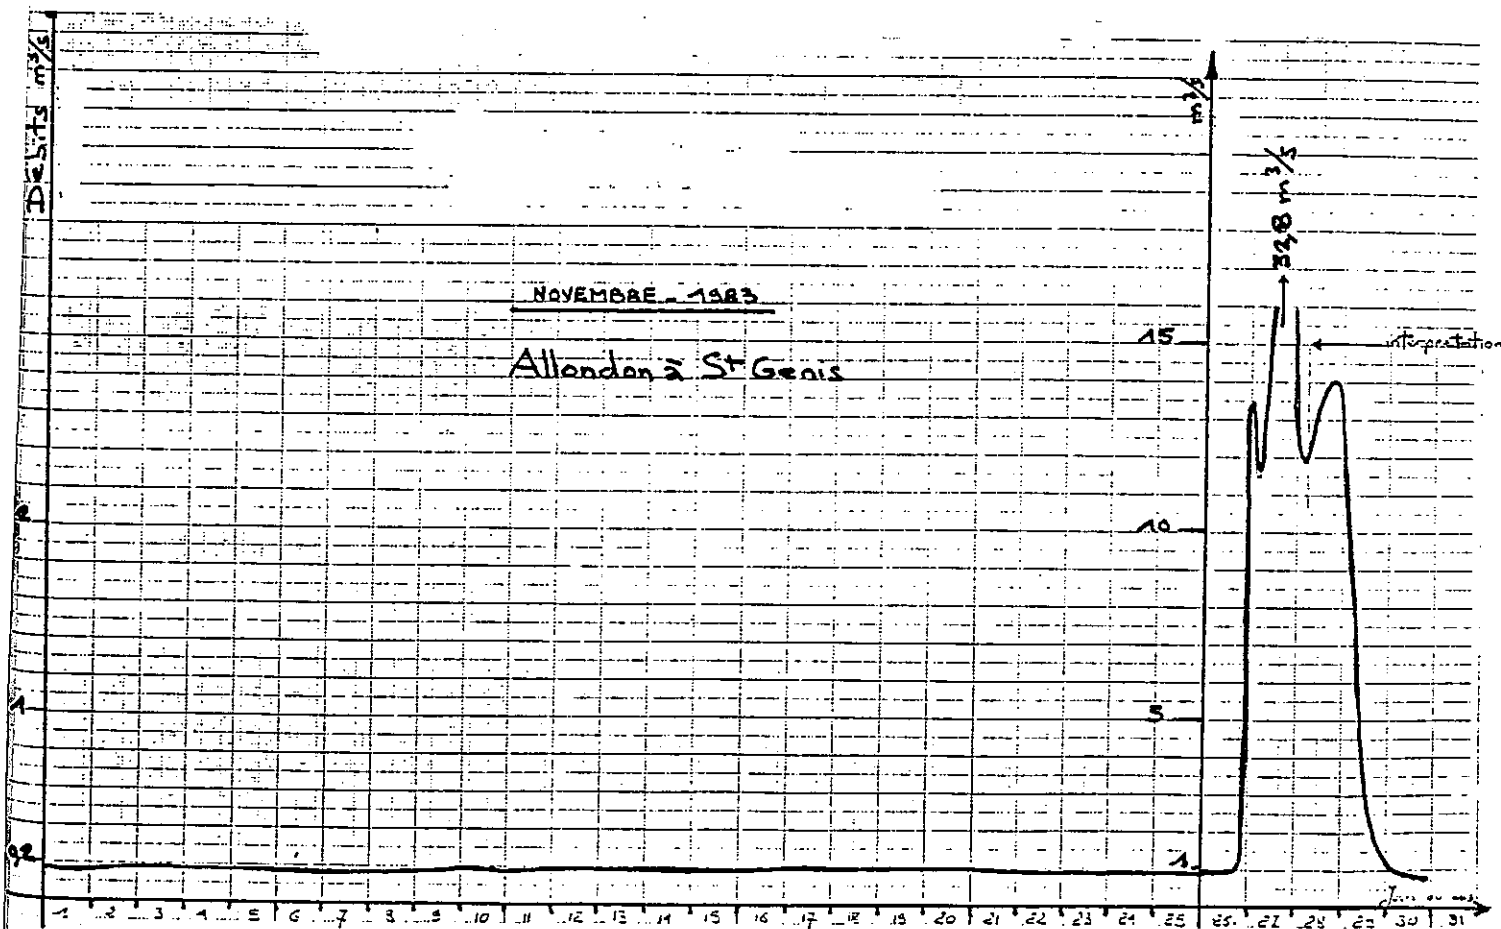 Débits m³/s
m³/s
32,8 m³/s
NOVEMBRE - 1983
Allondon à St Genis
15
interpretation
10
5
1
0,2
1
1 2 3 4 5 6 7 8 9 10 11 12 13 14 15 16 17 18 19 20 21 22 23 24 25 26 27 28 29 30 31